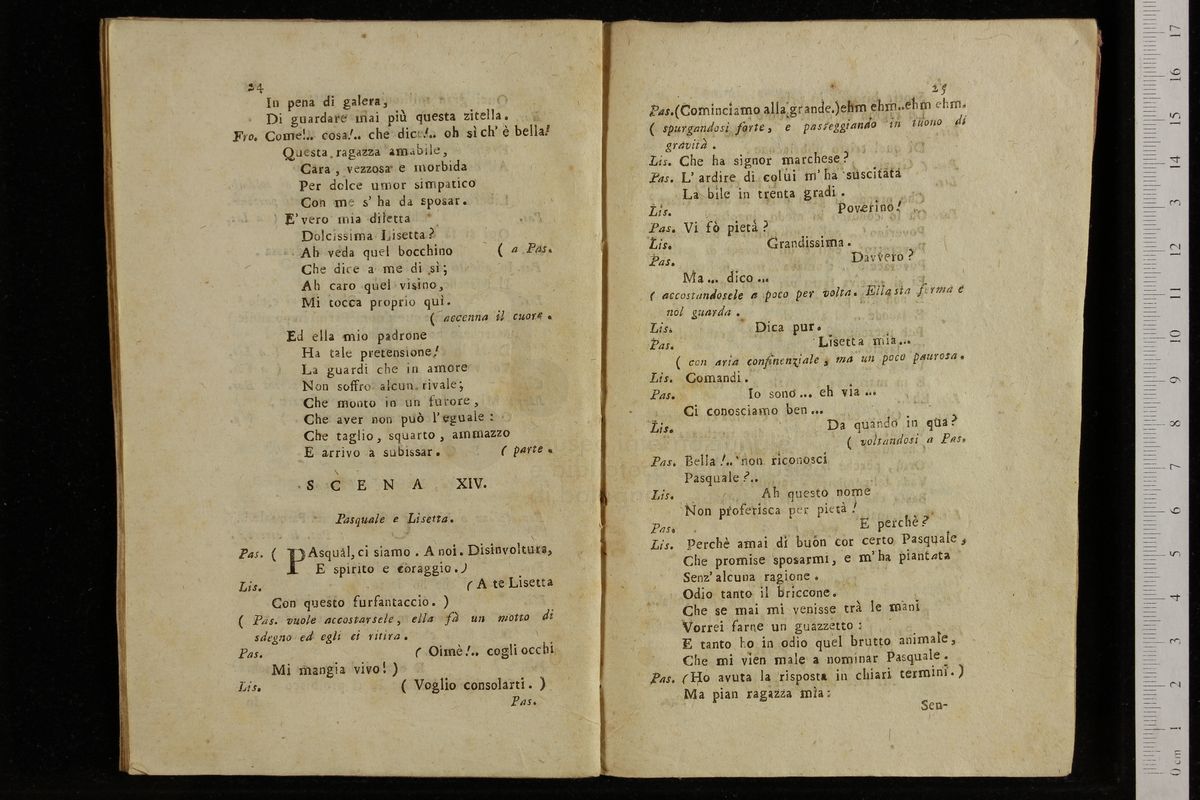 24
In pena di galera,
Di guardare mai più questa zitella.
Fro. Come!.. cosa!.. che dice!.. oh sì ch' è bella!
Questa ragazza amabile,
Cara, vezzosa e morbida
Per dolce umor simpatico
Con me s' ha da sposar.
E' vero mia diletta
Dolcissima Lisetta?
Ah veda quel bocchino ( a Pas.
Che dice a me di sì;
Ah caro quel visino,
Mi tocca proprio quì.
( accenna il cuore.
Ed ella mio padrone
Ha tale pretensione!
La guardi che in amore
Non soffro alcun rivale;
Che monto in un furore,
Che aver non può l'eguale:
Che taglio, squarto, ammazzo
E arrivo a subissar. ( parte.
SCENA XIV.
Pasquale e Lisetta.
Pas. ( PAsquàl, ci siamo. A noi. Disinvoltura,
E spirito e coraggio.)
Lis. ( A te Lisetta
Con questo furfantaccio. )
( Pas. vuole accostarsele, ella fà un motto di
sdegno ed egli ei ritira.
Pas. ( Oimè!.. cogli occhi
Mi mangia vivo! )
Lis. ( Voglio consolarti. )
Pas.
25
Pas. (Cominciamo alla grande.) ehm ehm..ehm ehm.
( spurgandosi forte, e passeggiando in tuono di
gravità.
Lis. Che ha signor marchese?
Pas. L' ardire di colui m' ha suscitata
La bile in trenta gradi.
Lis. Poverino!
Pas. Vi fò pietà?
Lis. Grandissima.
Pas. Davvero?
Ma... dico...
( accostandosele a poco per volta. Ella sta ferma e
nol guarda.
Lis. Dica pur.
Pas. Lisetta mia...
( con aria confinenziale, ma un poco paurosa.
Lis. Comandi.
Pas. Io sono... eh via...
Ci conosciamo ben...
Lis. Da quando in quà?
( voltandosi a Pas.
Pas. Bella!.. non riconosci
Pasquale?..
Lis. Ah questo nome
Non proferisca per pietà!
Pas. E perchè?
Lis. Perchè amai di buon cor certo Pasquale,
Che promise sposarmi, e m' ha piantata
Senz' alcuna ragione.
Odio tanto il briccone.
Che se mai mi venisse trà le mani
Vorrei farne un guazzetto:
E tanto ho in odio quel brutto animale,
Che mi vien male a nominar Pasquale.
Pas. (Ho avuta la risposta in chiari termini.)
Ma pian ragazza mia:
Sen-
0 cm 1 2 3 4 5 6 7 8 9 10 11 12 13 14 15 16 17